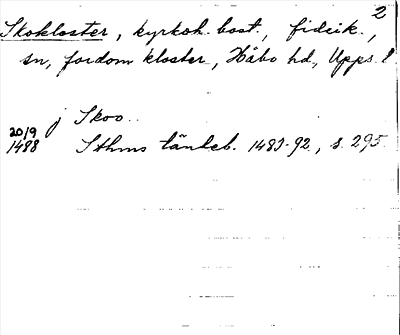 2
Skokloster, kyrkoh. bost., fideik.,
sn, fordom kloster, Håbo hd, Upps. l.
j Skoo..
20/9
1488 Sthms tänkeb. 1483-92, s. 295.